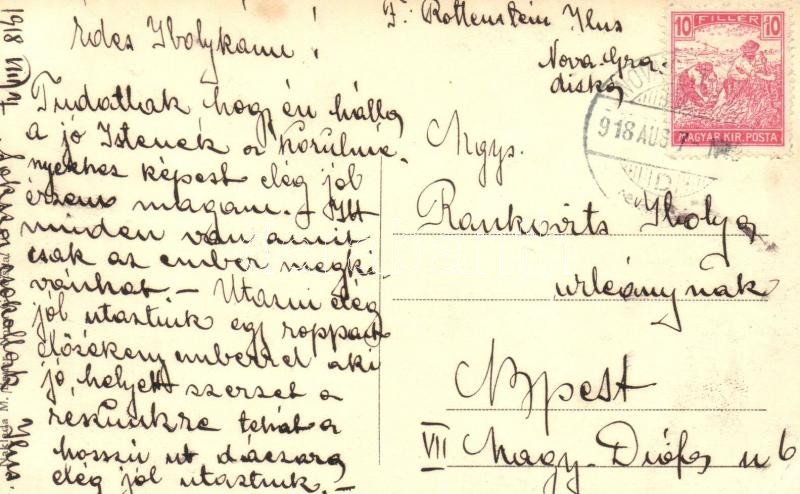 1918 VIII/7
Édes Ibolykám!
Tudatlak hogy én hálla
a jó Istenek a körülmé-
nyekhez képest elég jól
érzem magam. – Itt
minden van amit
csak az ember megki-
vánhat – Utazni elég
jól utaztunk egy roppant
előzékeny emberrel aki
jó helyett szerzet a
részünkre tehát a
hosszú ut dáczara
elég jól utaztunk. –
csokollak Ilus.
F: Rottenstein Ilus
Nova-Gra-
diska
10 FILLÉR 10
MAGYAR KIR. POSTA
918 AUG
Ngys.
Rankovits Ibolya
urleánynak
Bpest
VII Nagy-Diófa u 6